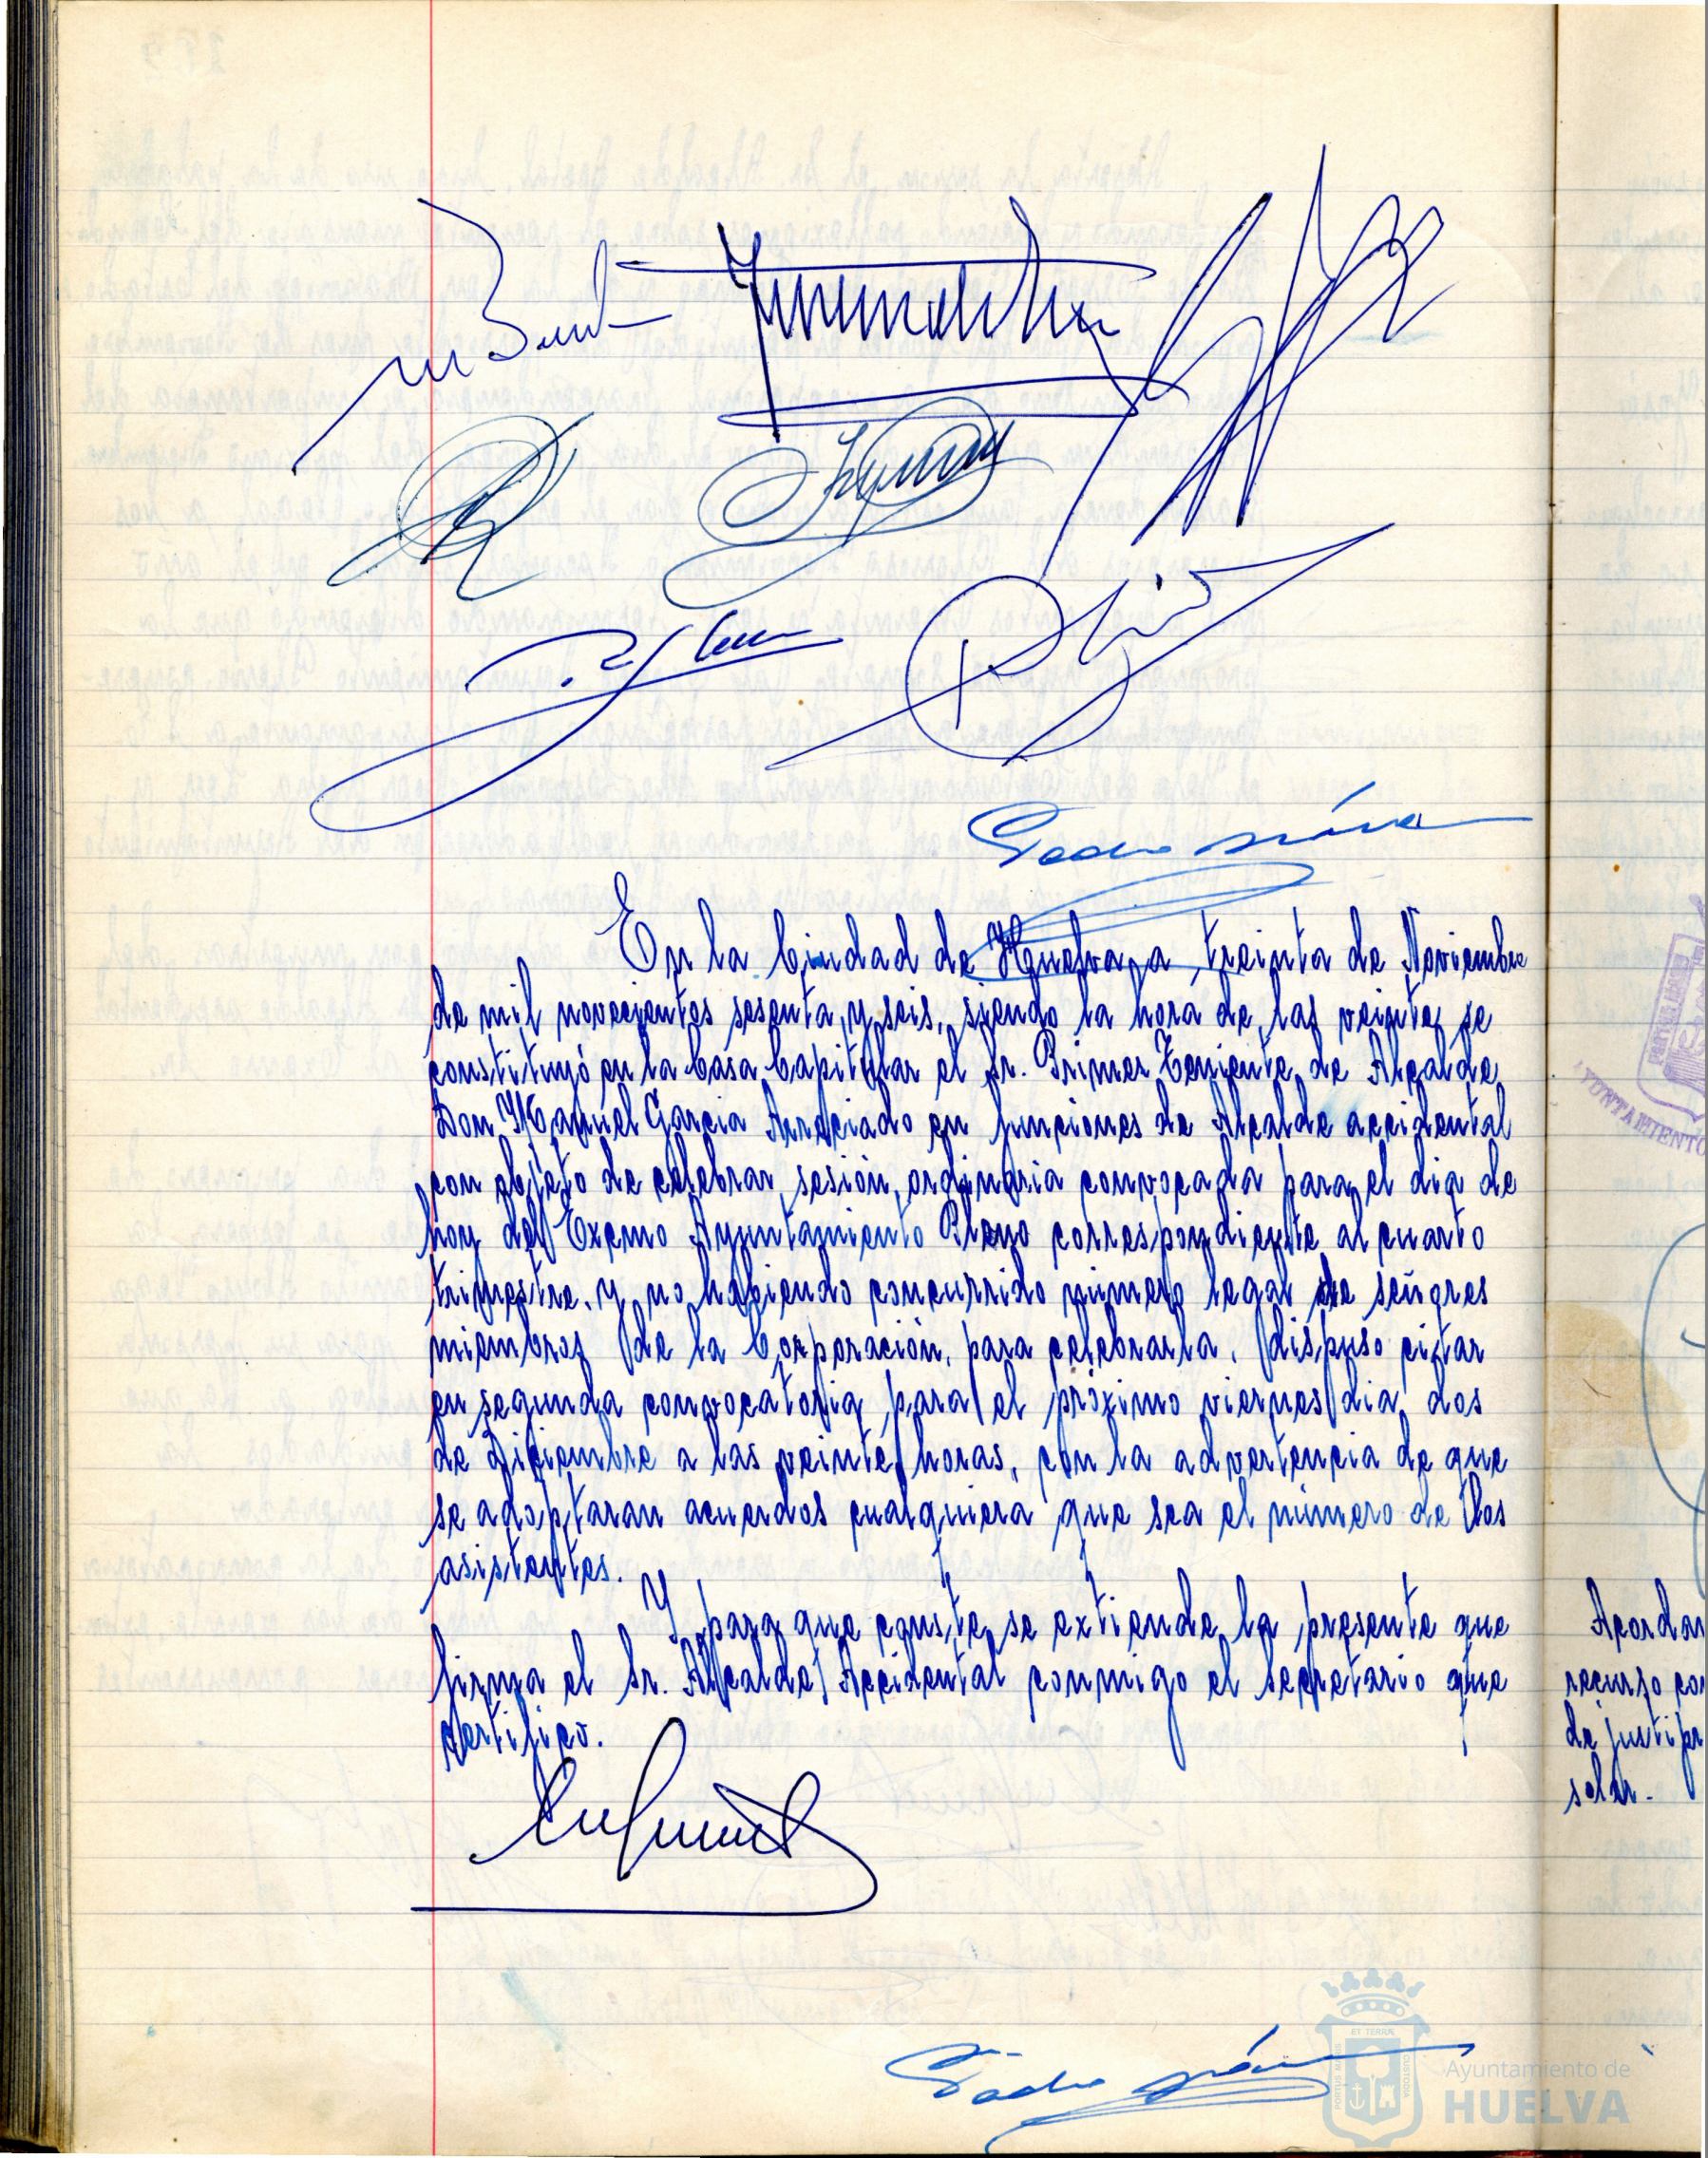 En la Ciudad de Huelva a treinta de Noviembre
de mil novecientos sesenta y seis, siendo la hora de las veinte, se
constituyó en la Casa Capitular el Sr. Primer Teniente de Alcalde
Don Manuel Garcia Arreciado en funciones de Alcalde accidental
con objeto de celebrar sesión ordinaria convocada para el dia de
hoy del Excmo Ayuntamiento Pleno correspondiente al cuarto
trimestre, y no habiendo concurrido número legal de señores
miembros de la Corporación, para celebrarla, dispuso citar
en segunda convocatoria para el próximo viernes dia dos
de Diciembre a las veinte horas, con la advertencia de que
se adoptaran acuerdos cualquiera que sea el número de los
asistentes.
Y para que conste, se extiende la presente que
firma el Sr. Alcalde Accidental conmigo el Secretario que
certifico.
Acordar
recurso con
de justipr
solar.
AYUNTAMIENTO
ET TERRÆ
PORTUS MARIS
CUSTODIA
Ayuntamiento de
HUELVA